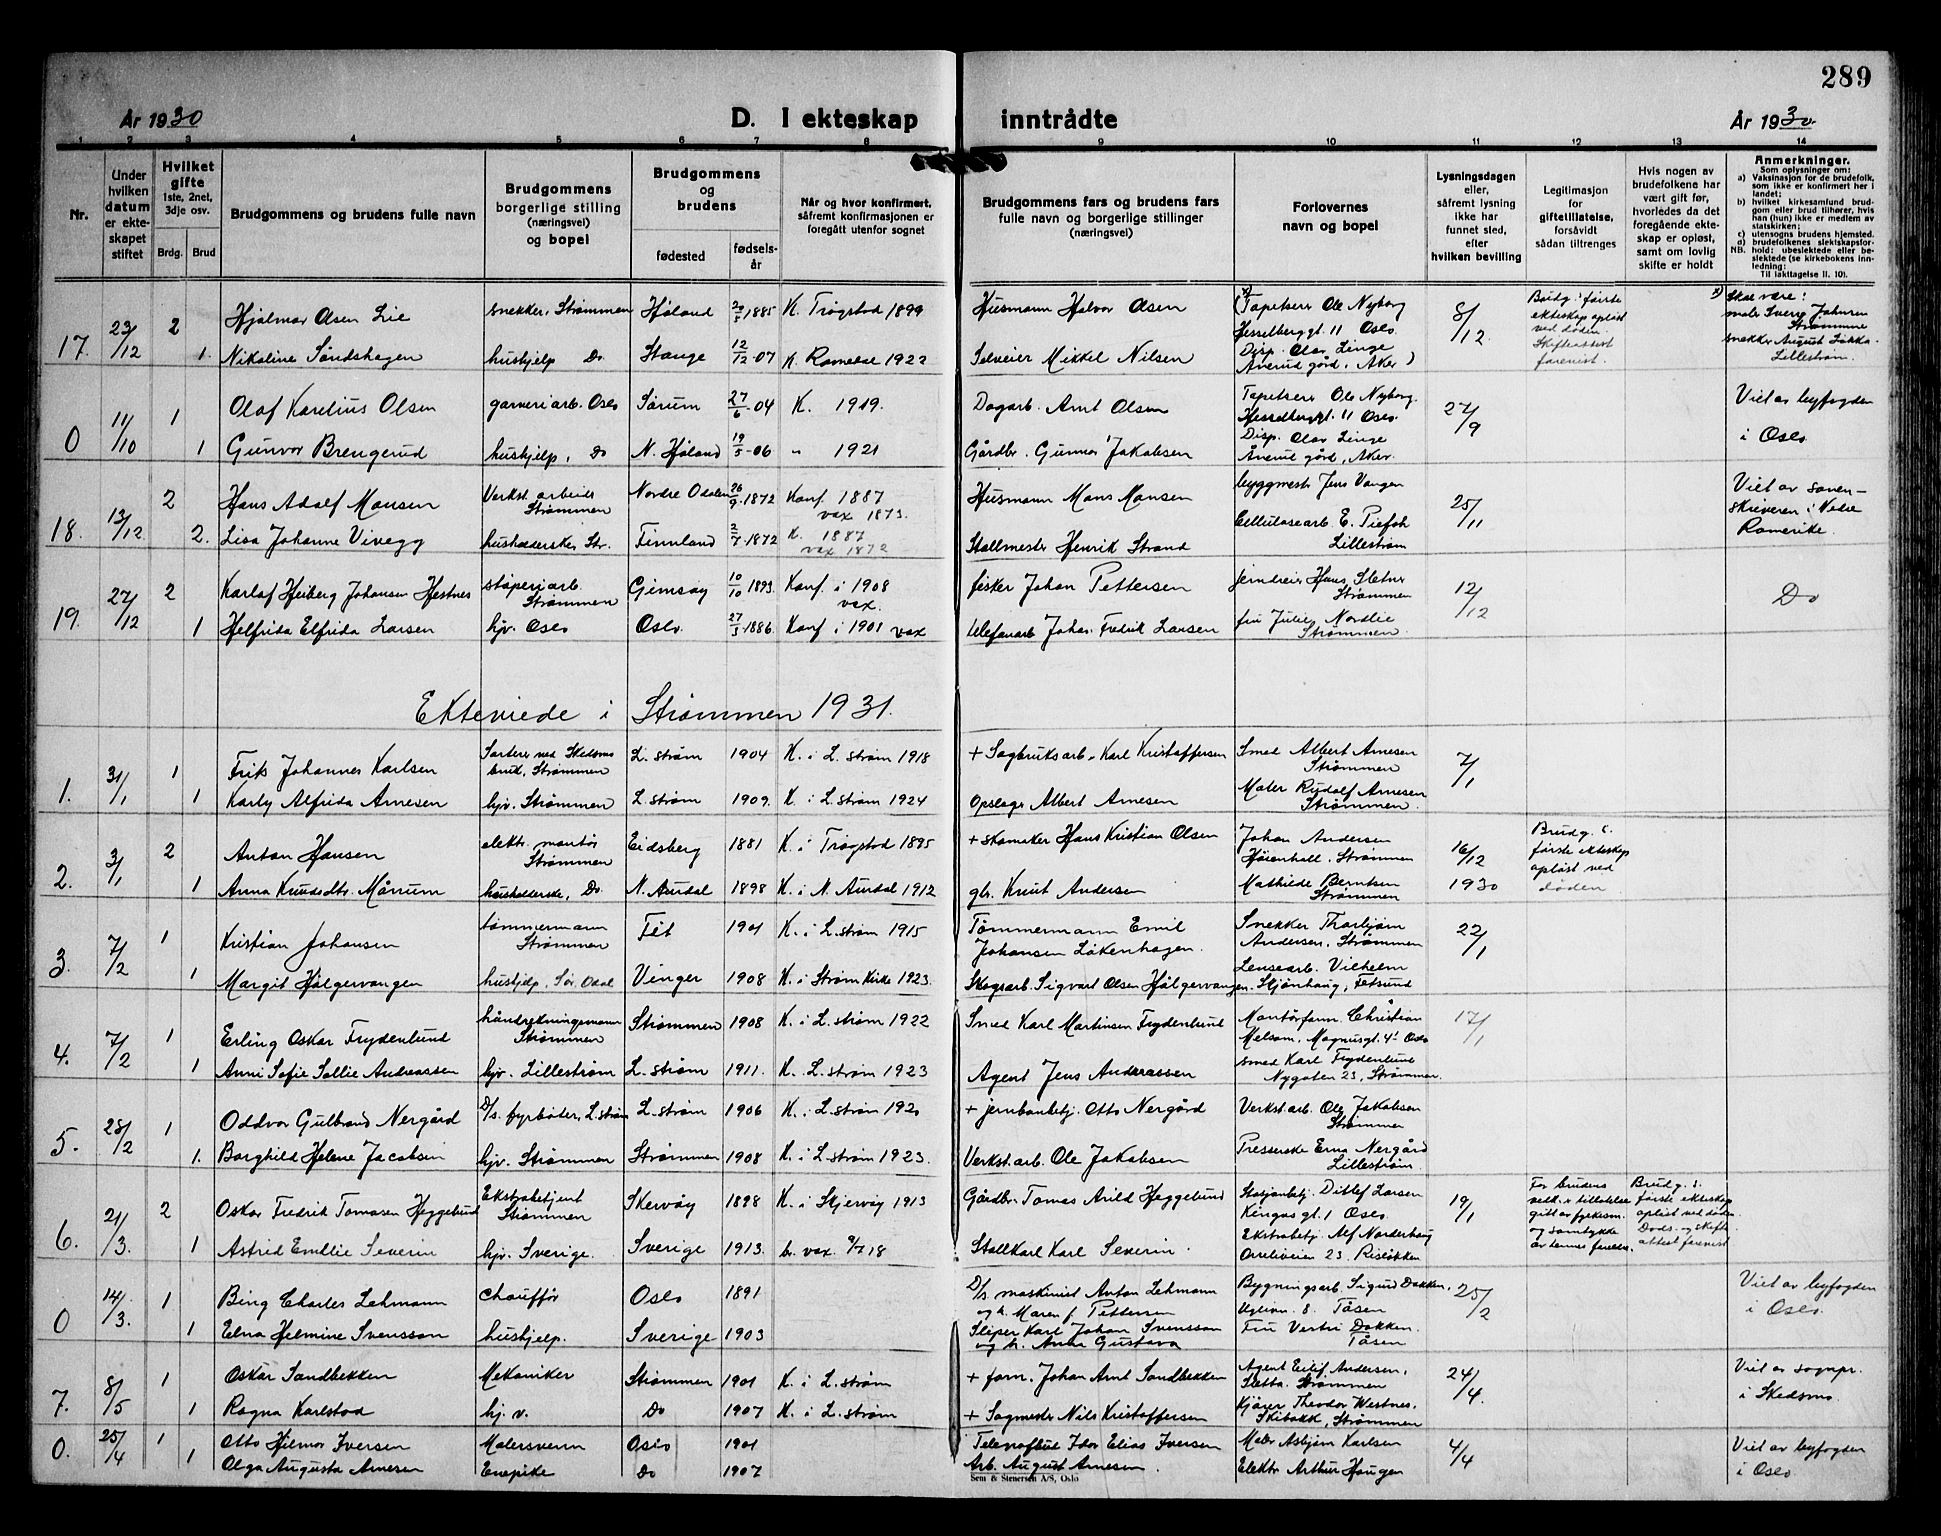 289
År 1930
D. I ekteskap inntrådte
År 1930
1 2 3 4 5 6 7 8 9 10 11 12 13 14
Nr.
Under hvilken datum er ekteskapet stiftet
Hvilket gifte 1ste, 2net, 3dje osv.
Brdg. Brud
Brudgommens og brudens fulle navn
Brudgommens borgerlige stilling (næringsvei) og bopel
Brudgommens og brudens
fødested
fødselsår
Når og hvor konfirmert, såfremt konfirmasjonen er foregått utenfor sognet
Brudgommens fars og brudens fars fulle navn og borgerlige stillinger (næringsvei)
Forlovernes navn og bopel
Lysningsdagen eller, såfremt lysning ikke har funnet sted, efter hvilken bevilling
Legitimasjon for giftetillatelse, forsåvidt sådan tiltrenges
Hvis nogen av brudefolkene har vært gift før, hvorledes da det foregående ekteskap er opløst, samt om lovlig skifte er holdt
Anmerkninger.
Som oplysninger om:
a) Vaksinasjon for de brudefolk, som ikke er konfirmert her i landet;
b) hvilket kirkesamfund brudgom eller brud tilhører, hvis han (hun) ikke er medlem av statskirken;
c) utensogns brudens hjemsted.
d) brudefolkenes slektskapsforhold: ubeslektede eller beslektede (se kirkebokens innledning:
NB. Til iakttagelse II. 10).
17. 23/12 2 Hjalmar Olsen Lie snekker, Strømmen Høland 2/5 1885 K. Trøgstad 1899 Husmann Halvor Olsen (Tapetserer Ole Nyborg Hesselberggt. 11 Oslo. 8/12 Brudg. i første ekteskap opløst ved døden. Skifteattest forevist. x) Skal være: maler Sverre Johnsen Strømmen
1. Nikoline Søndshagen hushjelp Do Stange 12/12-07 K. Romedal 1922 Selveier Mikkel Nilsen Disp. Olav Linge Ånerud gård, Aker) snekker August Løkka Lillestrøm.
0 11/10 1 Olaf Karelius Olsen garveriarb. Oslo Sørum 27/6-04 K. 1919. Dagarb. Amt Olsen Tapetserer Ole Nyborg. Hesselberggt. 11 Oslo. 27/9 Viet av byfogden i Oslo
1 Gunvor Brengerud hushjelp, Do N. Høland 19/5-06 " 1921 Gårdbr. Gunnar Jakobsen Disp. Olav Linge Ånerud gård, Aker.
18. 13/12 2 Hans Adolf Mansen Verkst. arbeider Strømmen Nordre Odalen 26/9-1872 Konf 1887 vax 1873. Husmann Mons Mansen byggmestr Jens Vangen 25/11 Viet av sorenskriveren i Nedre Romerike.
2. Lisa Johanne Vivegg husholderske, Str. Finnland 2/7-1872 K. 1887 vax 1872 Stallmester Henrik Strand Cellulosearb. E. Lillestrøm
19. 27/12 2 Karlaf Heiberg Johansen Hestnes støperiarb. Strømmen Gimsøy 10/10 1893. Konf. i 1908 vax. fisker Johan Pettersen jerndreier Hans Sletner Strømmen 12/12 Do
1 Helfrida Elfrida Larsen hjv. Oslo Oslo. 27/3-1886 Konf i 1901 vax telefonarb Johan Fredrik Larsen fru Julie Nordlie Strømmen.
Ekteviede i Strømmen 1931.
1. 31/1 1 Frits Johannes Karlsen Sorterer ved Skedsmo bruk, Strømmen L. strøm 1904 K. i L. strøm 1918 + Sagbruksarb. Karl Kristoffersen Smed Albert Arnesen Strømmen 7/1
1 Karly Alfrida Arnesen hjv. Strømmen L. strøm 1909. K. i L. strøm 1924 Opslager Albert Arnesen Maler Rudolf Arnesen Strømmen.
2. 3/1 2 Anton Hansen elektr. montør Strømmen Eidsberg 1881 K. i Trøgstad 1895 + skomaker Hans Kristian Olsen Johan Andersen Høienhall, Strømmen 16/12 1930 Brudg. i. første ekteskap opløst ved døden
1 Anna Knudsdtr. Mørrum husholderske, Do. N. Aurdal 1898 K. i N. Aurdal 1912 gbr. Knut Andersen Mathilde Berntsen Strømmen
3. 7/2 1 Kristian Johansen tømmermann Strømmen Fet 1901 K. i L. strøm 1915 Tømmermann Emil Johansen Løkenhagen. Snekker Thorbjørn Andersen, Strømmen 22/1
1 Margit Hølgervangen hushjelp, Sør Odal Vinger 1908 K. i Strøm Kirke 1923. Skogsarb. Sigvart Olsen Hølgervangen. Lensearb. Vilhelm Skjønhaug, Fetsund
4. 7/2 1 Erling Oskar Frydenlund håndrekningsmann Strømmen Strømmen 1908 K. i L. strøm 1922 Smed Karl Martinsen Frydenlund Montørform. Christian Melsom, Magnusgt. 4I Oslo 17/1
1 Anni Sofie Sollie Andreassen hjv. Lillestrøm L. strøm 1911. K. L. strøm 1923 Agent Jens Andreassen smed Karl Frydenlund Nygaten 23, Strømmen.
5. 28/2 1 Oddvar Gulbrand Nergård D/s. fyrbøter, L. strøm L. strøm 1906 K. i L. strøm 1920 + jernbanebetj. Otto Nergård Verkst. arb. Ole Jakobsen Strømmen
1. Borghild Helene Jacobsen hjv. Strømmen Strømmen 1908 K. i L. strøm 1923. Verkst. arb. Ole Jakobsen Presserske Erna Nergård Lillestrøm
6. 21/3. 2 Oskar Fredrik Tomasen Heggelund Ekstrabetjent Strømmen Skervøy 1898 K. i Skjervøy 1913 Gårdbr. Tomas Arild Heggelund Stasjonsbetj. Ditlef Larsen Kingos gt. 1 Oslo. 19/1 For brudens vedk. er tillatelse gitt av fylkesm. og samtykke av hennes foreldre. Brudg. i. første ekteskap opløst ved døden Døds- og skifteattest forevist
1 Astrid Emilie Severin hjv. Sverige. Sverige 1913. b. vax 9/7 18 Stallkarl Karl Severin. Ekstrabetj. Alf Norderhaug 23. Risløkken
0 14/3. 1 Bing Charles Lehmann Chauffør Oslo 1891 D/s. maskinist Anton Lehmann og h. Maren f. Pettersen Bygningsarb. Sigurd Dokken, Uglevn. 8. Tåsen 25/2 Viet av byfogden i Oslo.
1 Elna Helmine Svensson hushjelp. Sverige 1903 Sliper Karl Johan Svensson og h. Anna Gustava Fru Dokken. Tåsen
7. 8/5 1 Oskar Sandbekken Mekaniker Strømmen 1901 K. i L. strøm + form. Johan Arnt Sandbekken Agent Eilif Andersen, Sletta. Strømmen 24/4. Viet av sognpr. i Skedsmo.
1 Ragna Karlstad hj. v. Do 1907 K. i L. strøm + Sagmester Nils Kristoffersen Kjører Theodor Westnes, Skibakk, Strømmen
0. 25/4 1 Otto Hilmar Iversen Malersvenn Oslo 1901 Telegrafbud Idar Elias Iversen Maler Asbjørn Karlsen 4/4 Viet av byfogden i Oslo.
1 Olga Augusta Arnesen Enepike Do 1907 Arb. August Arnesen. Elektr Arthur Haugen
Sem & Stenersen A/S, Oslo